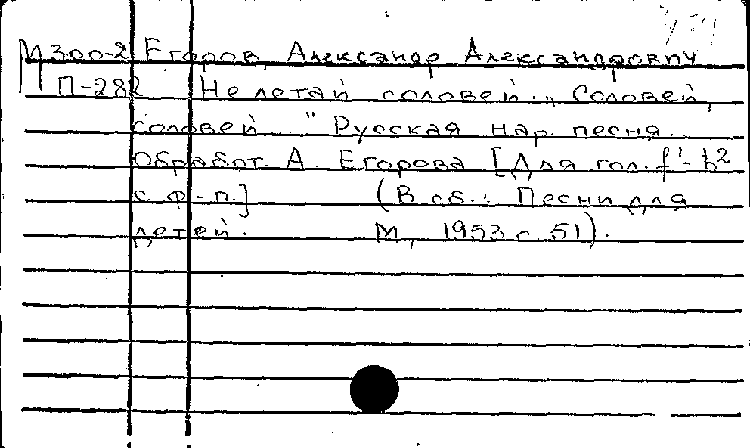 М300-2 Егоров, Александр Александрович
П-282 Не летай соловей. „Соловей,
соловей..." Русская нар. песня.
Обработ. А. Егорова [Для гол. f¹-b²
с ф-п.] (В сб.: Песни для
детей. М., 1953 с 51).